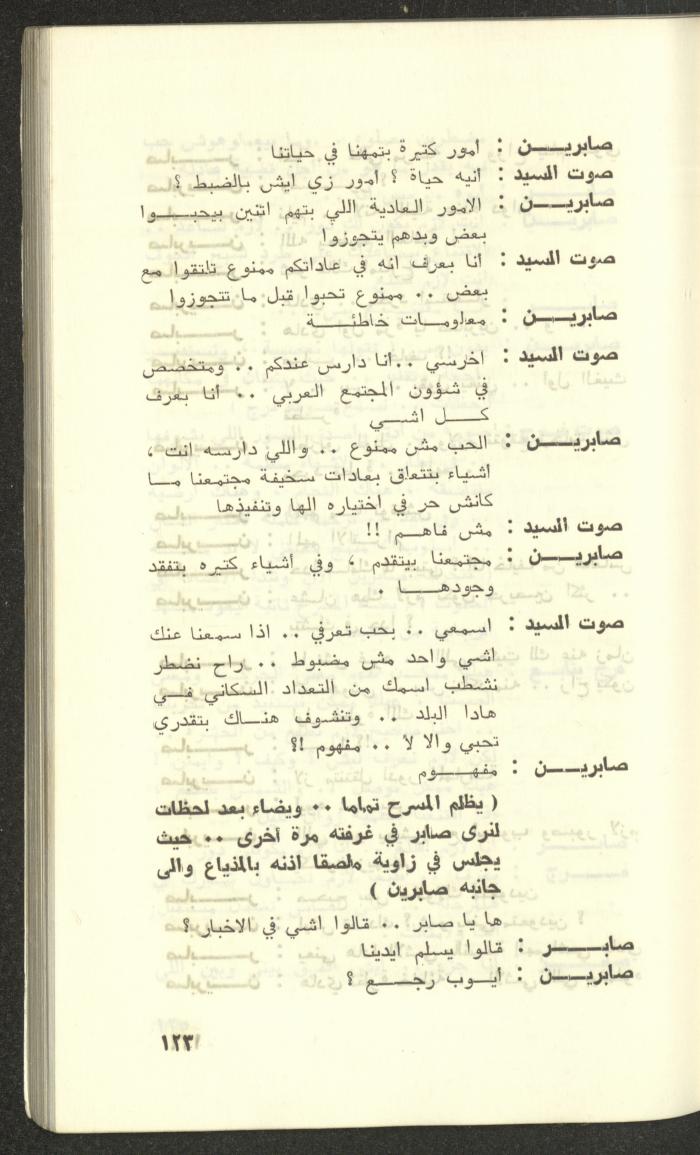 صابريـــن : أمور كتيرة بتهمنا في حياتنا
صوت السيد : أنيه حياة ؟ أمور زي ايش بالضبط ؟
صابريـــن : الامور العادية اللي بتهم اتنين بيحبـــوا
بعض وبدهم يتجوزوا
صوت السيد : أنا بعرف انه في عاداتكم ممنوع تلتقوا مع
بعض .. ممنوع تحبوا قبل ما تتجوزوا
صابريـــن : معلومـــات خاطئـــة
صوت السيد : اخرسي ..أنا دارس عندكم .. ومتخصص
في شؤون المجتمع العربي .. أنا بعرف
كـــل اشـــي
صابريـــن : الحب مش ممنوع .. واللي دارسه انت ،
اشياء بتتعلق بعادات سخيفة مجتمعنا مـــا
كانش حر في اختياره الها وتنفيذها
صوت السيد : مش فاهـــم !!
صابريـــن : مجتمعنا بيتقدم ، وفي أشياء كتيره بتفقد
وجودهـــا .
صوت السيد : اسمعي .. بحب تعرفي .. اذا سمعنا عنك
اشي واحد مش مضبوط .. راح نضطر
نشطب اسمك من التعداد السكاني فـــي
هادا البلد .. وتنشوف هنـــاك بتقدري
تحبي والا لأ .. مفهوم !؟
صابريـــن : مفهـــوم
( يظلم المسرح تماما .. ويضاء بعد لحظات
لنرى صابر في غرفته مرة أخرى .. حيث
يجلس في زاوية ملصقا اذنه بالمذياع والى
جانبه صابرين )
ها يا صابر .. قالوا اشي في الاخبار ؟
صابـــر : قالوا يسلم ايدينا
صابريـــن : أيـــوب رجـــع ؟
١٢٣